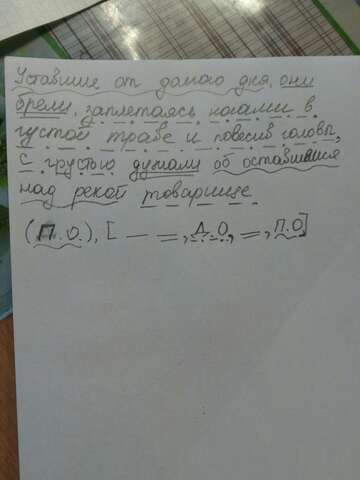 Уставшие от долгого дня, они
брели, заплетаясь ногами в
густой траве и повесив головы,
с грустью думали об оставшемся
над рекой товарище.
(П.О.), [— =, Д.О, =, П.О]